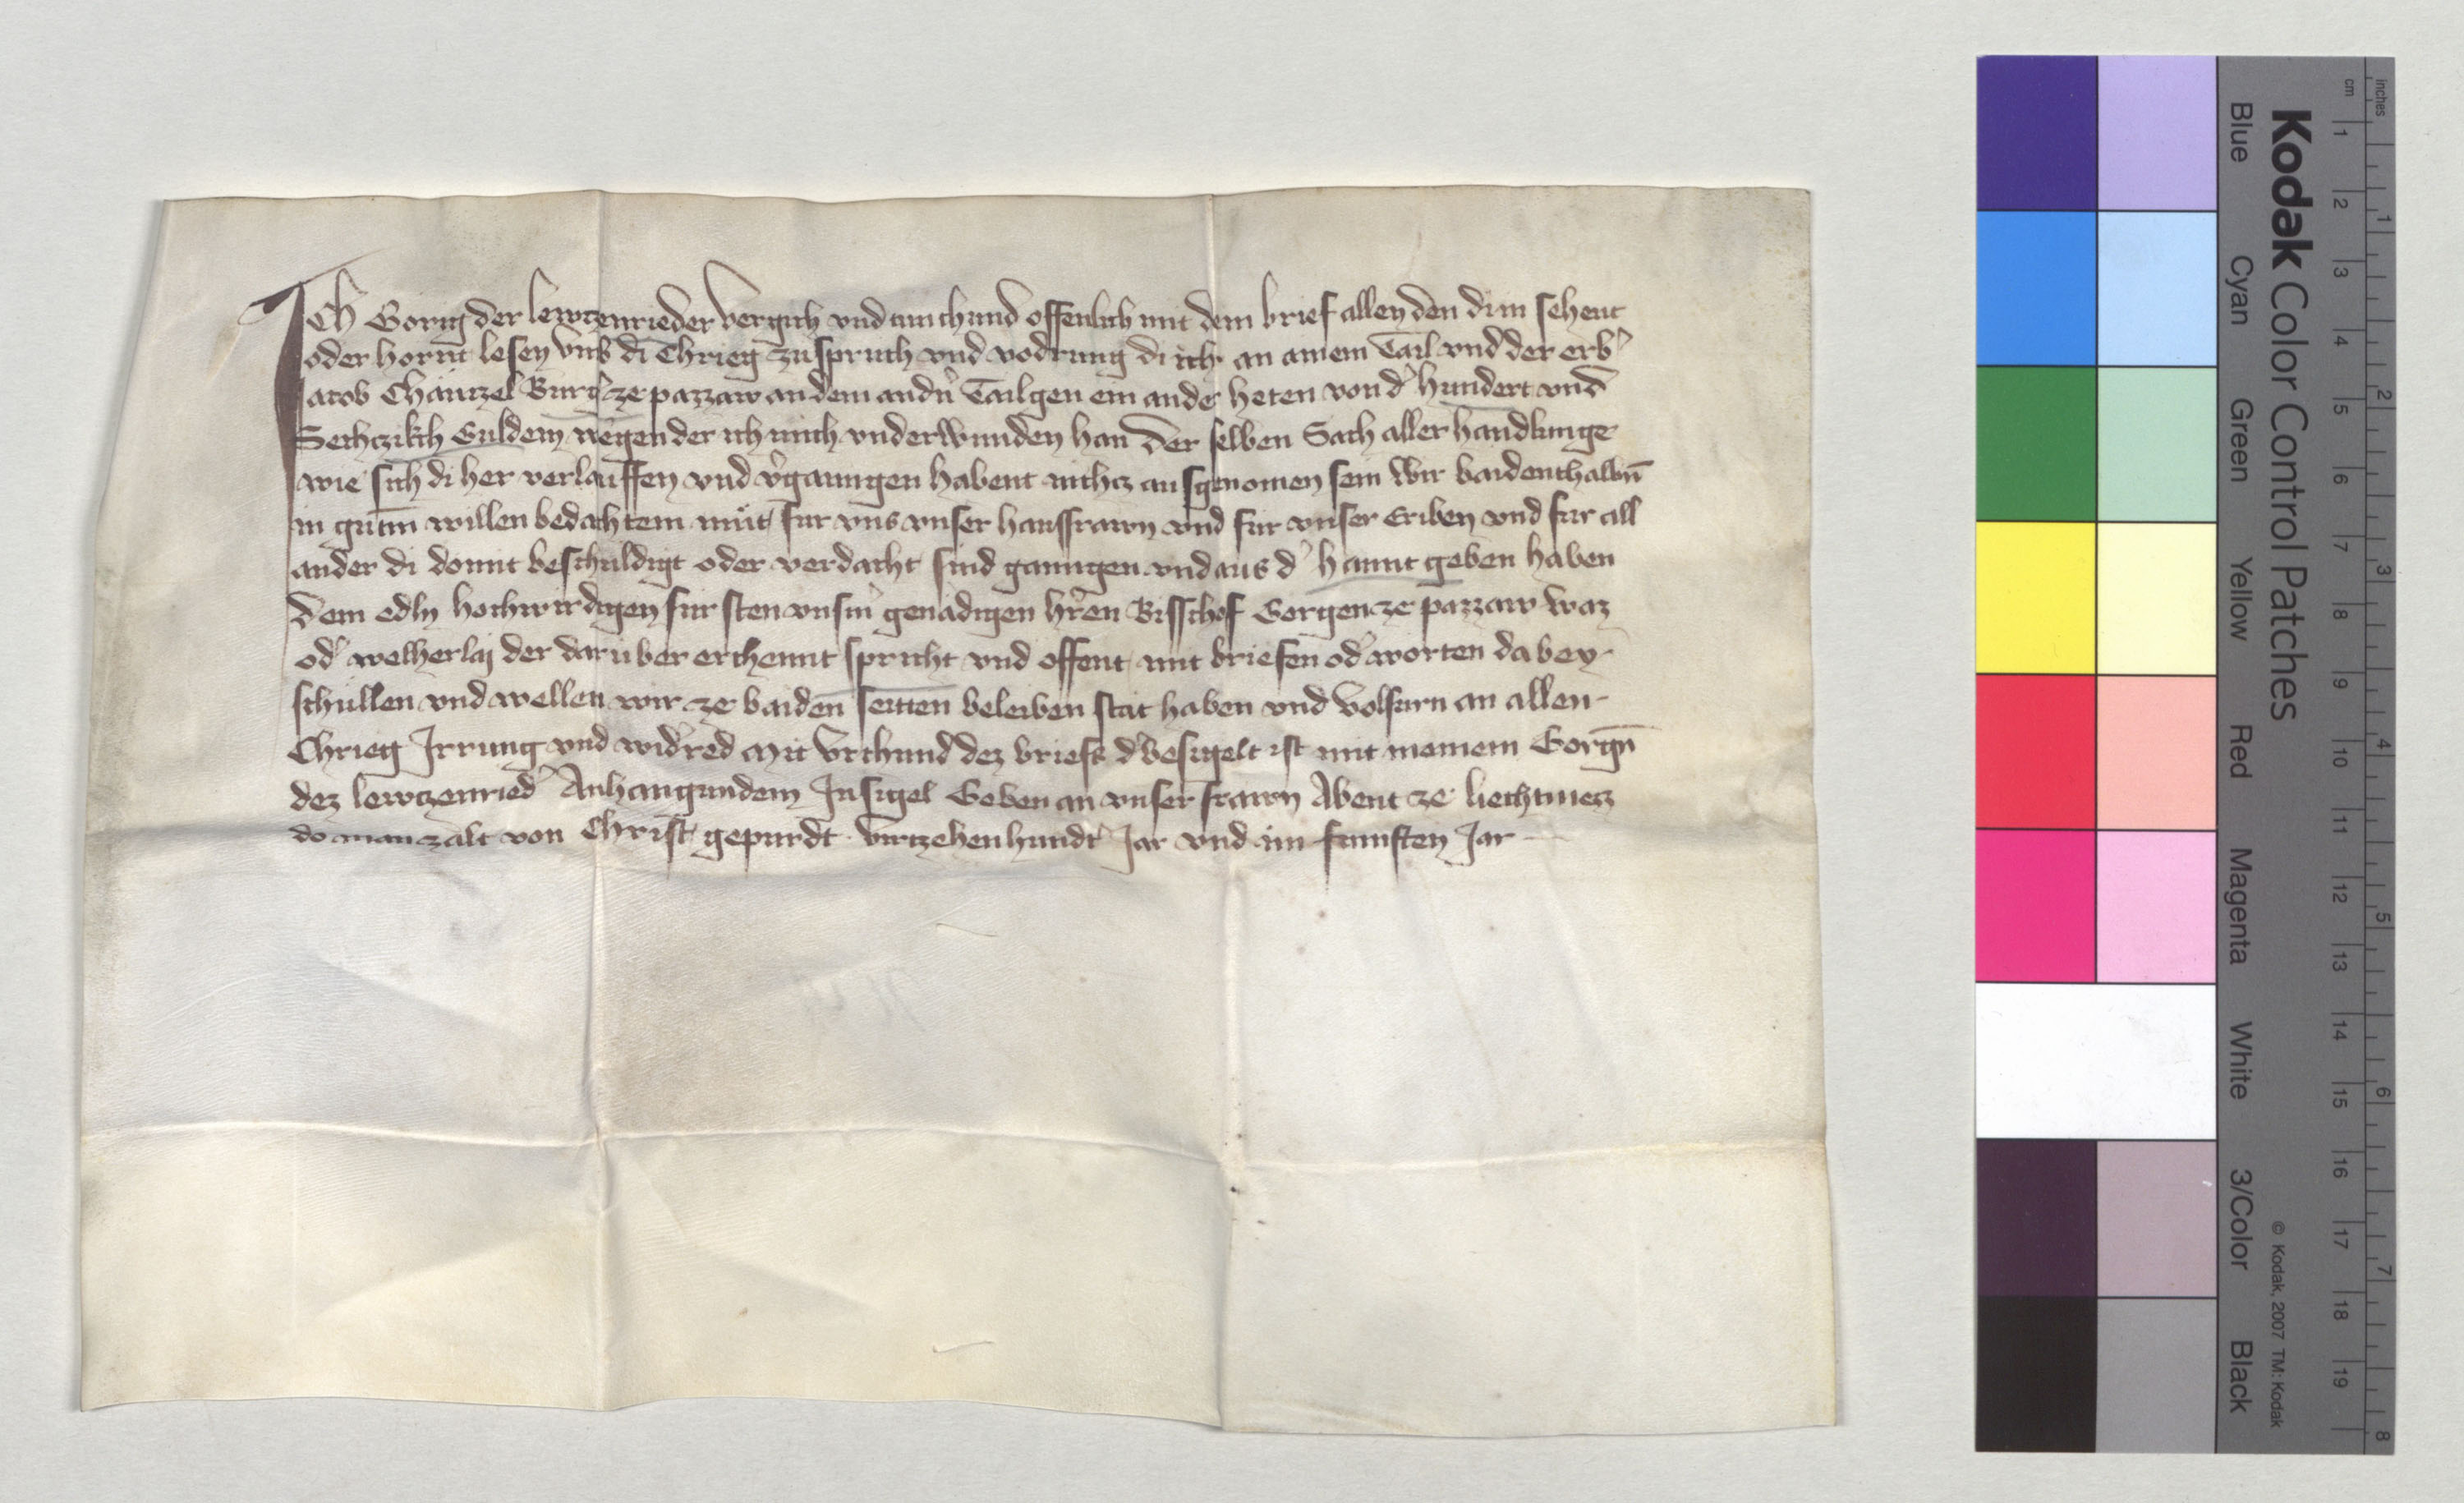 Ich Gorig der lewtzenrieder vergich vnd tun chund offenlich mit dem brief allen den di in sehent
oder horn̄t lesen vmb di Chrieg zuspruch vnd vodrung di ich an ainem Tail vnd der erb̾
Jacob Chäntzel Burg̾ ze pazzaw an dem andn̄ Tail gen ein ander heten von d̾ hundert vnd
Sechczikch Guldein wegen der ich mich vnderwunden han Der selben Sach aller handlunge
wie sich di her verlauffen vnd v̾gangen habent nichcz ausgenomen sein Wir baidenthalbn̄
in gutm̄ willen bedachtem müt für vns vnser hausfrawn vnd für vnser Eriben vnd für all
ander di domit beschuldigt oder verdacht sind gangen vnd aus d̾ hannt geben haben
Dem edln hochwirdigen fürsten vnsm̄ genädigen hr̄en Bisschof Gorgen ze pazzaw Waz
od̾ welherlaj der darüber erchennt spricht vnd offent mit briefen od̾ worten dabey
schüllen vnd wellen wir ze baiden̄ seitten̄ beleiben stät haben vnd Volfurn an allen
Chrieg Irrung vnd wid̾red Mit Vrchund dez briefs d̾ besigelt ist mit meinem Gorgn̄
dez lewtzenried̾ Anhangundem Insigel Geben an vnser frawn Abent ze liechtmecz
do man zalt von Christ gepurdt virtzehenhundt̾ Jar vnd im funften Jar
Kodak Color Control Patches
Blue Cyan Green Yellow Red Magenta White 3/Color Black
© Kodak, 2007 TM: Kodak
cm 1 2 3 4 5 6 7 8 9 10 11 12 13 14 15 16 17 18 19
inches 1 2 3 4 5 6 7 8